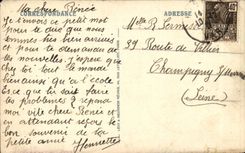 Ma chère Renée
CORRESPONDANCE
ADRESSE
Je t'envoie ce petit mot
pour te dire que nous
sommes très bien arrivés
et pour te demander de
tes nouvelles. J'espère que
chez toi tout le monde
bien ainsi qu'à l'école
Est-ce que tu sais faire
les problèmes ? répond
moi vite chère Renée et
en attendant reçois un
bon souvenir de ta
petite amie Henriette
Melle R.
39 Route de Villiers
Champigny s/Marne
(Seine)